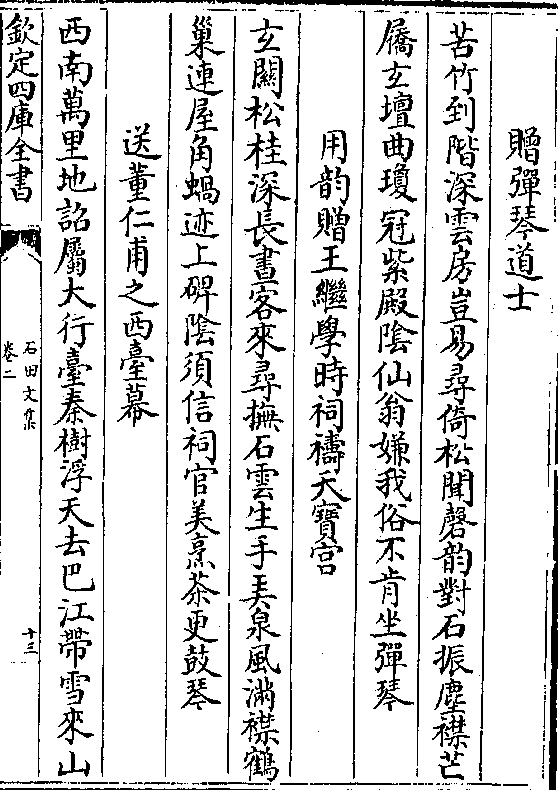 贈彈琴道士
苦竹到階深雲房豈易尋倚松聞磬韵對石振塵襟芒
屩玄壇曲瓊冠紫殿陰仙翁嫌我俗不肯坐彈琴
用韵贈王繼學時祠禱天寶宫
玄闗松桂深長晝客來尋撫石雲生手弄泉風滿襟鶴
巢連屋角蝸迹上碑陰須信祠官美烹茶更鼓琴
送董仁甫之西臺幕
西南萬里地詔屬大行臺秦樹浮天去巴江帶雪來山
欽定四庫全書
石田文集
卷二
十三